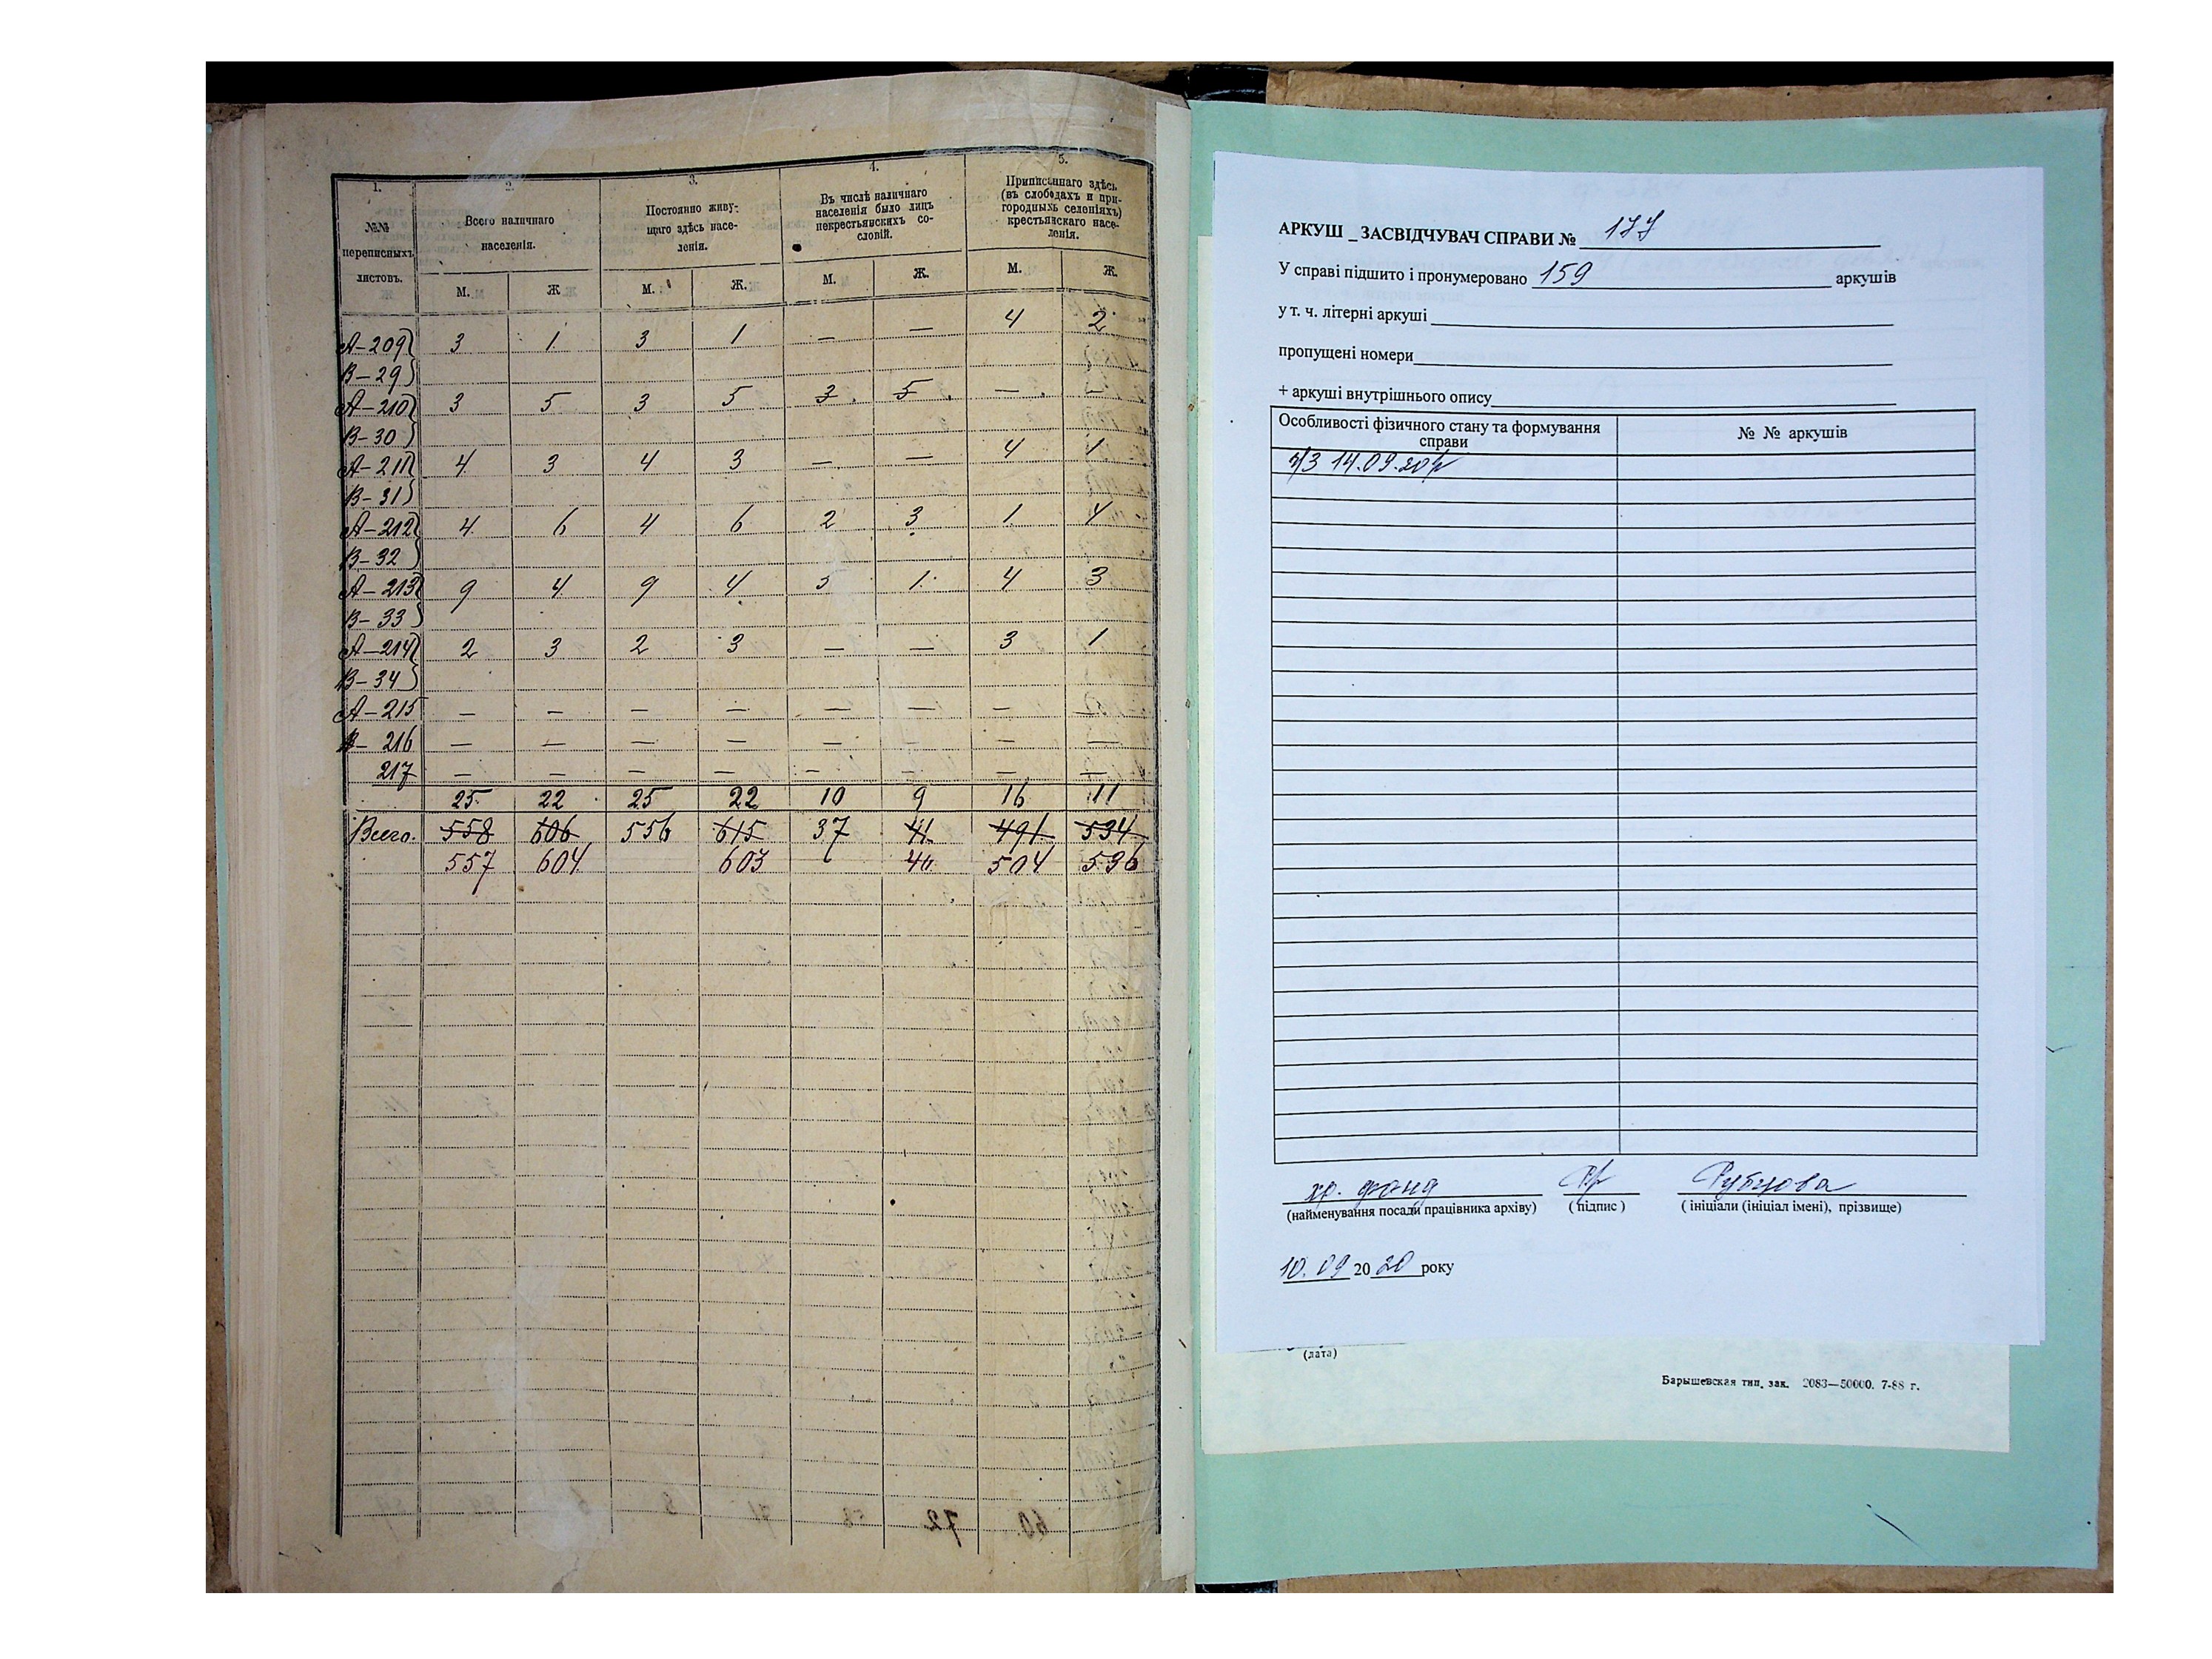 1. 2. 3. 4. 5.
№№ переписныхъ листовъ.
Всего наличнаго населенія.
Постоянно живущаго здѣсь населенія.
Въ числѣ наличнаго населенія было лицъ некрестьянскихъ сословій.
Приписаннаго здѣсь (въ слободахъ и пригородныхъ селеніяхъ) крестьянскаго населенія.
М. Ж. М. Ж. М. Ж. М. Ж.
А-209 3 1 3 1 — — 4 2
В-29
А-210 3 5 3 5 3 5 — —
В-30
А-211 4 3 4 3 — — 4 1
В-31
А-212 4 6 4 6 2 3 1 4
В-32
А-213 9 4 9 4 5 1 4 3
В-33
А-214 2 3 2 3 — — 3 1
В-34
А-215 — — — — — — — —
В-216 — — — — — — — —
217 — — — — — — — —
25 22 25 22 10 9 16 11
Всего. 558 606 556 615 37 41 491 534
557 604 603 40 504 536
АРКУШ _ ЗАСВІДЧУВАЧ СПРАВИ № 177
У справі підшито і пронумеровано 159 аркушів
у т. ч. літерні аркуші
пропущені номери
+ аркуші внутрішнього опису
Особливості фізичного стану та формування справи
№ № аркушів
14.09.20р
хр. фонд Рубцова
(найменування посади працівника архіву) ( підпис ) ( ініціали (ініціал імені), прізвище)
10.09 2020 року
(дата)
Барышевская тип. зак. 2083—50000. 7-88 г.